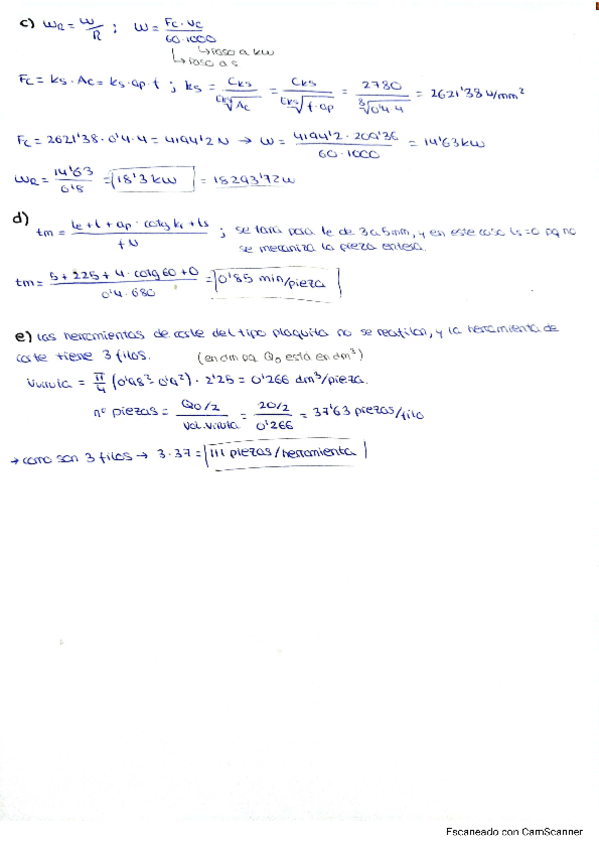 c) WR = W/R ; W = Fc · Vc / 60·1000
↳ paso a kw
↳ paso a s
Fc = ks · Ac = ks · ap · f ; ks = Cks / Cks√Ac = Cks / Cks√f·ap = 2780 / 8√0'4·4 = 2621'38 N/mm²
Fc = 2621'38 · 0'4 · 4 = 4194'2 N → W = 4194'2 · 209'36 / 60·1000 = 14'63 kw
WR = 14'63 / 0'8 = 18'3 kw = 18293'72 w
d)
tm = le + l + ap · cotg kr + ls / f N ; se tara para le de 3 a 5 mm, y en este caso ls = 0 pq no
se mecaniza la pieza entera.
tm = 5 + 225 + 4 · cotg 60 + 0 / 0'4 · 680 = 0'85 min/pieza
e) las herramientas de corte del tipo plaquita no se reafilan, y la herramienta de
corte tiene 3 filos. (en dm pq Q0 está en dm³)
Vviruta = π/4 (0'98² - 0'9²) · 2'25 = 0'266 dm³/pieza.
nº piezas = Q0/2 / Vol. viruta = 20/2 / 0'266 = 37'63 piezas/filo
→ como son 3 filos → 3·37 = 111 piezas/herramienta
Escaneado con CamScanner